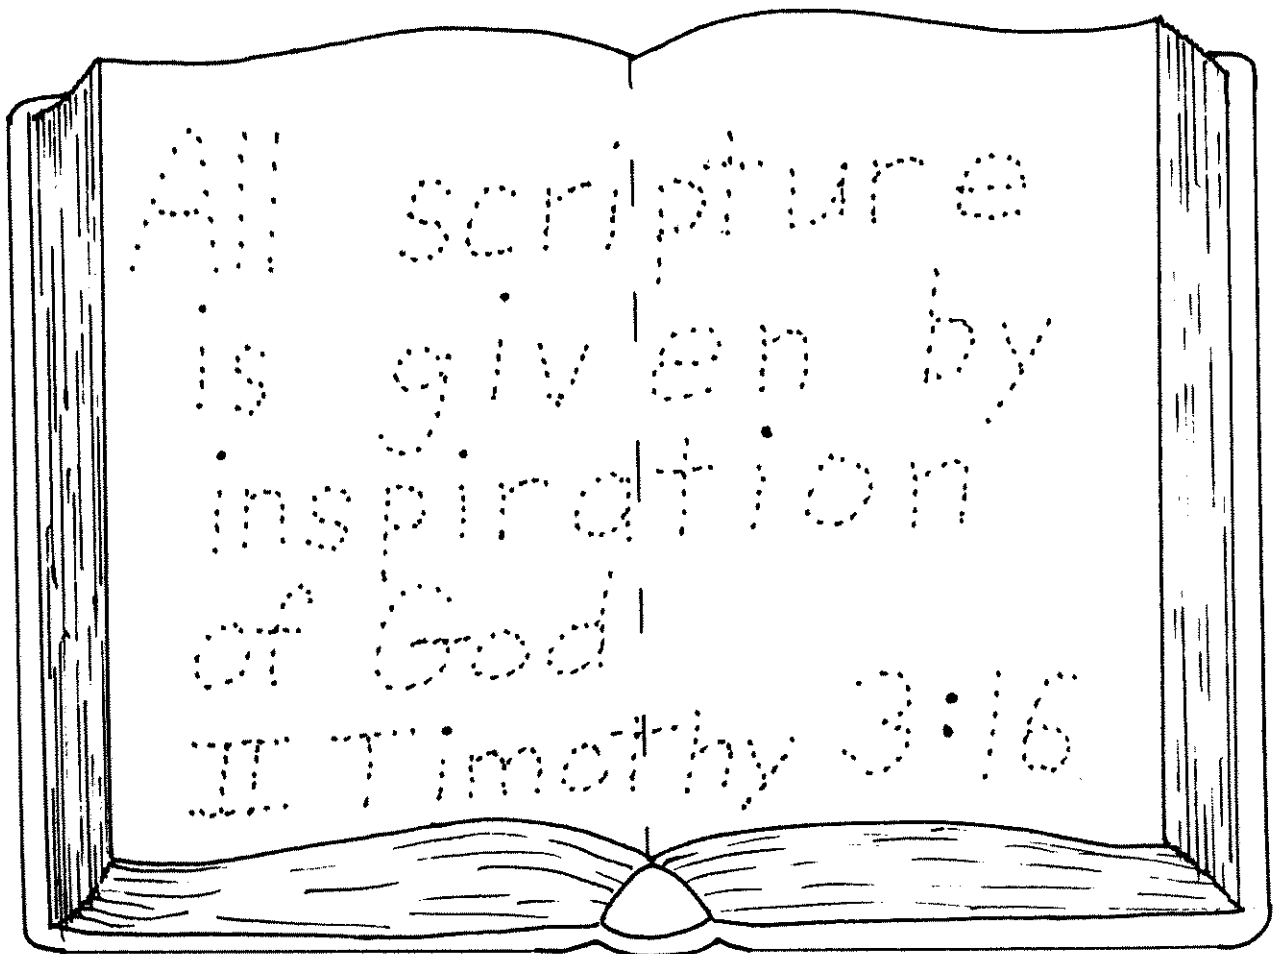 All scripture
is given by
inspiration
of God
II Timothy 3:16